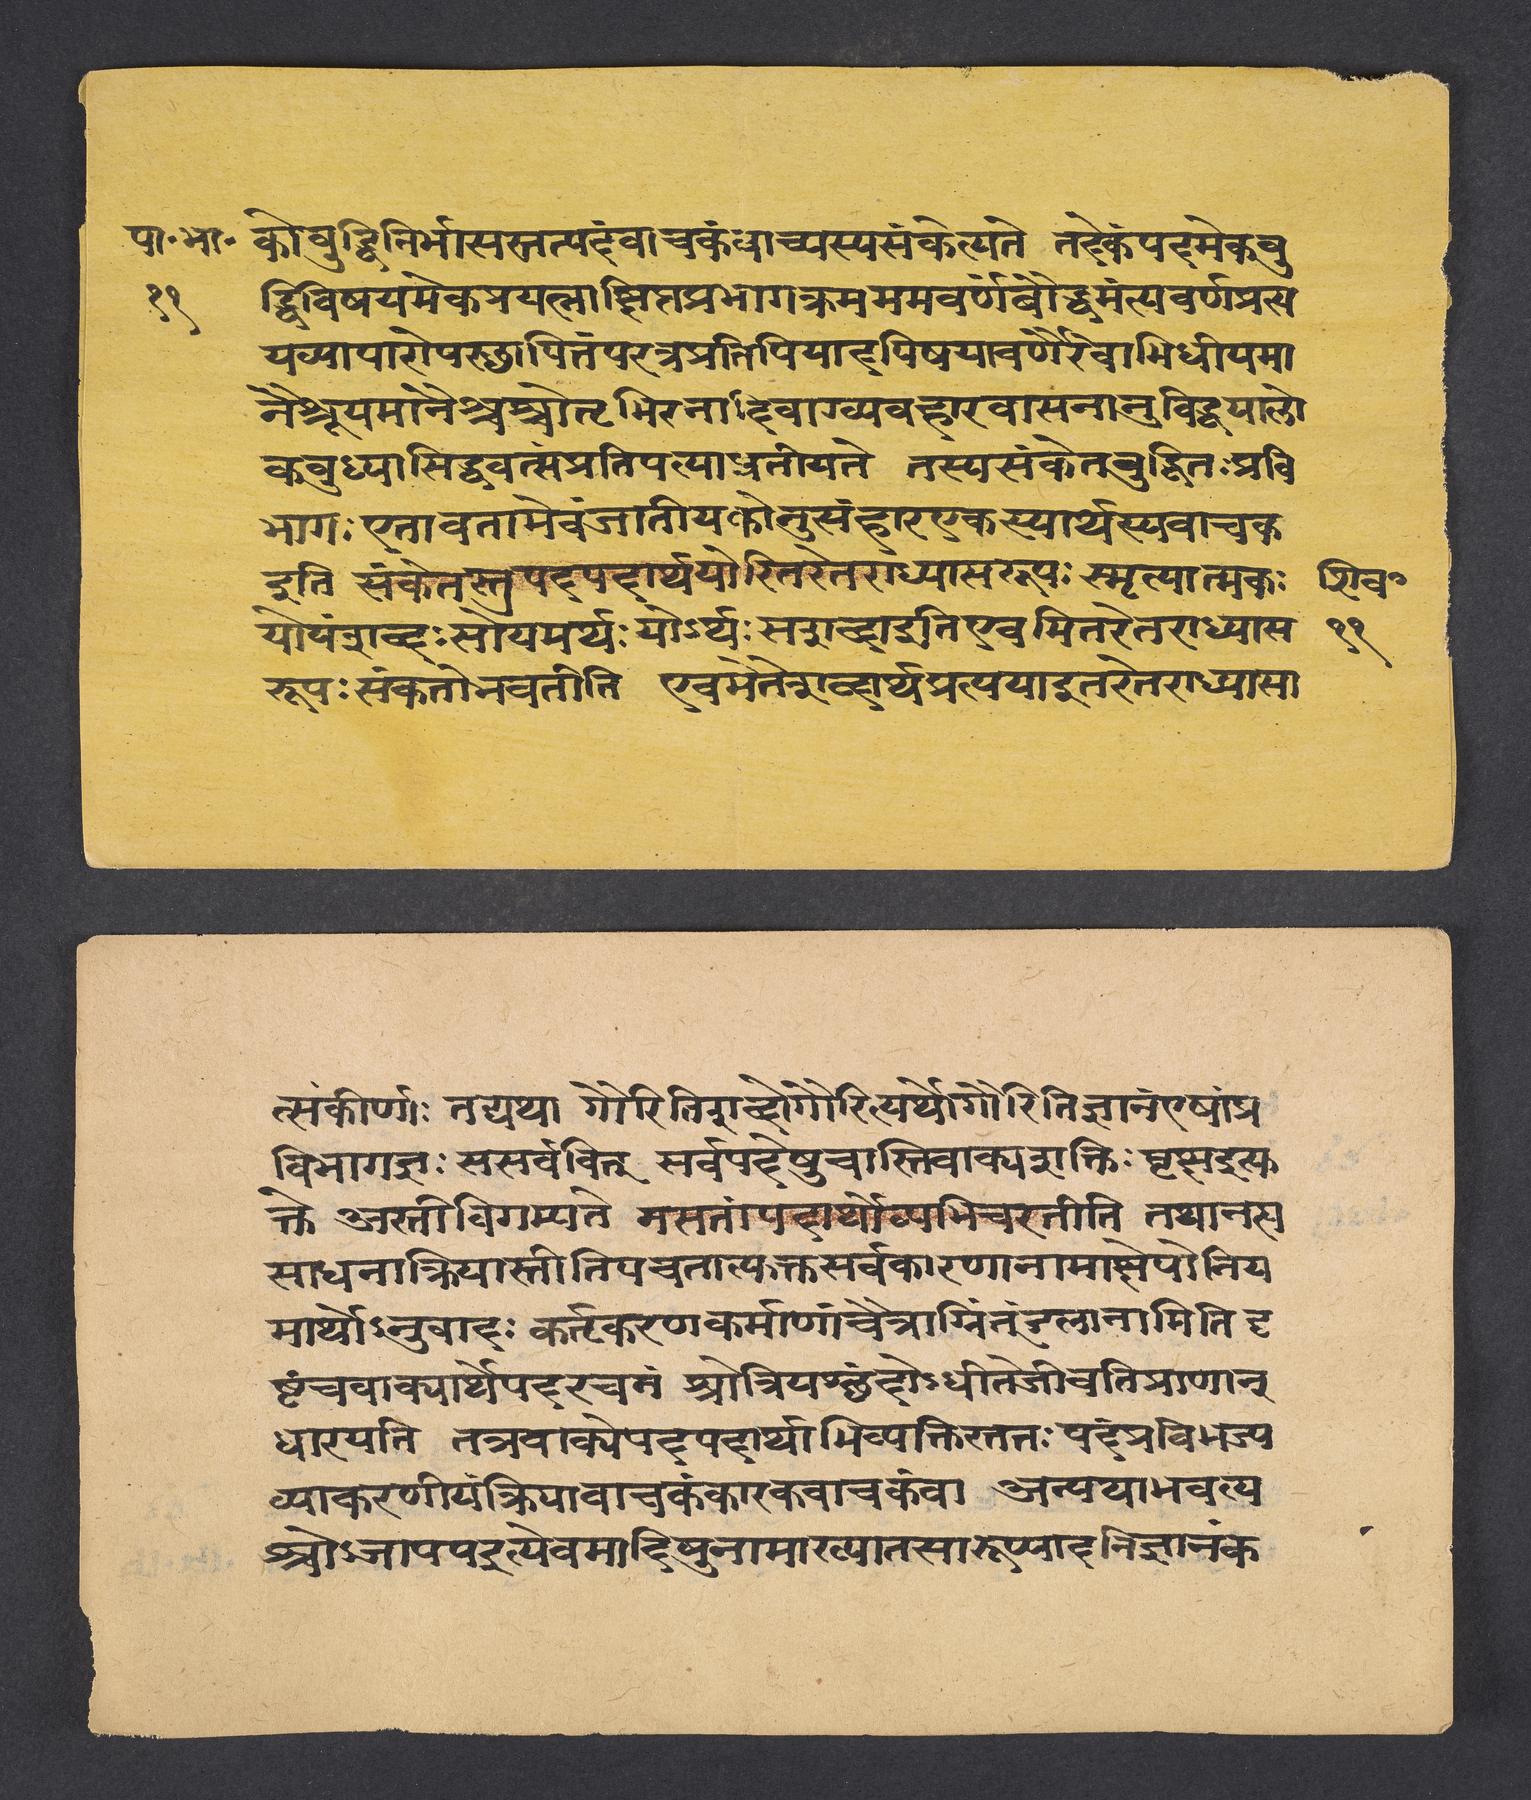 पा॰भा॰ को बुद्धिनिर्भासस्तत्पदंवाचकंवाच्यस्यसंकेत्यते तदेकंपदमेकबु
११ द्धिविषयमेकप्रयत्नाक्षिप्तप्रभागक्रमममवर्णंबौद्धमंत्यवर्णप्रत्य
यव्यापारोपस्छापितंपरत्रप्रतिपिपादपिषयावर्णैरेवाभिधीयमा
नैश्रूयमानैश्चश्रोतृभिरनादिवाग्व्यवहारवासनानुविद्धयालो
कबुध्यासिद्धवत्संप्रतिपत्याप्रतीयते तस्यसंकेतबुद्धितःप्रवि
भागः एतावतामेवंजातीयकोनुसंहारएकस्यार्थस्यवाचक
इति संकेतस्तुपदपदार्थयोरितरेतराध्यासरूपः स्मृत्यात्मकः शिव॰
योयंशब्दःसोयमर्थः योऽर्थःसशब्दइतिएवमितरेतराध्यास ११
रूपःसंकतोभवतीति एवमेतेशब्दार्थप्रत्ययाइतरेतराध्यासा
त्संकीर्णाः तद्यथा गौरितिशब्दोगौरित्यर्थोगौरितिज्ञानंएषांप्र
विभागज्ञः ससर्ववित् सर्वपदेषुचास्तिवाक्यशक्तिः वृक्षइत्यु
क्ते अस्तीविगम्यते नसत्तांपदार्थोव्यभिचरतीति तथानह्य
साधनाक्रियास्तीतिपचतात्युक्तसर्वकारणानामाक्षेपोनिय
मार्थोऽनुवादः कर्तृकरणकर्माणांचैत्राग्नितंडुलानामिति दृ
ष्टंचवाक्यार्थेपदरचनं श्रोत्रियश्छंदोऽधीतेजीवतिप्राणान्
धारयति तत्रवाक्येपदपदार्थाभिव्यक्तिस्ततः पदंप्रविभज्य
व्याकरणीयंक्रियावाचकंकारकवाचकंवा अन्यथाभवत्य
श्वोऽजापयइत्येवमादिषुनामाख्यातसारूप्यादनिज्ञानंक